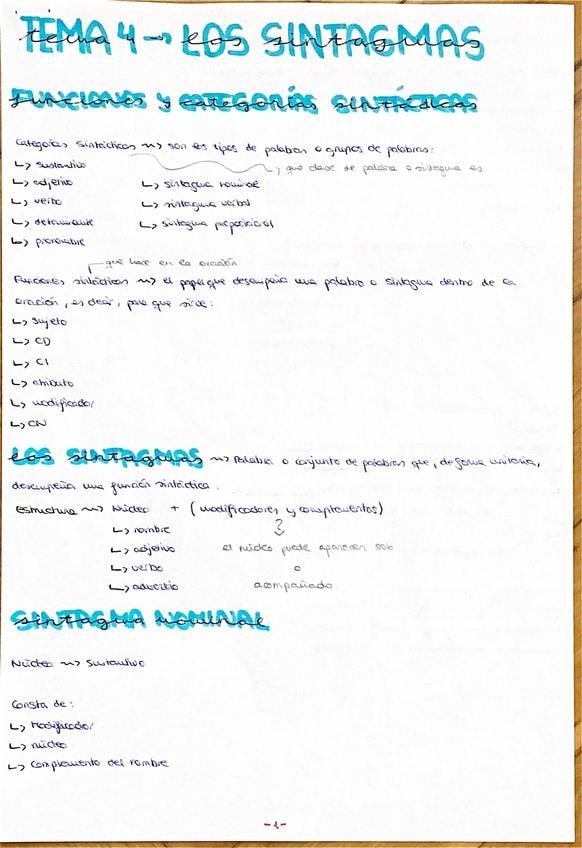 TEMA 4 → LOS SINTAGMAS
FUNCIONES Y CATEGORÍAS SINTÁCTICAS
Categorías sintácticas ~> son los tipos de palabras o grupos de palabras:
↳ sustantivo
↳ que clase de palabra o sintagma es
↳ adjetivo ↳ sintagma nominal
↳ verbo ↳ sintagma verbal
↳ determinante ↳ sintagma preposicional
↳ pronombre
que hace en la oración
Funciones sintácticas ~> el papel que desempeña una palabra o sintagma dentro de la
oración, es decir, para que sirve:
↳ sujeto
↳ CD
↳ CI
↳ atributo
↳ modificador
↳ CN
LOS SINTAGMAS ~> Palabra o conjunto de palabras que, de forma unitaria,
desempeña una función sintáctica.
Estructura ~> Núcleo + (modificadores y complementos)
↳ nombre ?
↳ adjetivo el núcleo puede aparecer solo
↳ verbo o
↳ adverbio acompañado
SINTAGMA NOMINAL
Núcleo ~> Sustantivo
Consta de:
↳ Modificador
↳ núcleo
↳ complemento del nombre
-1-